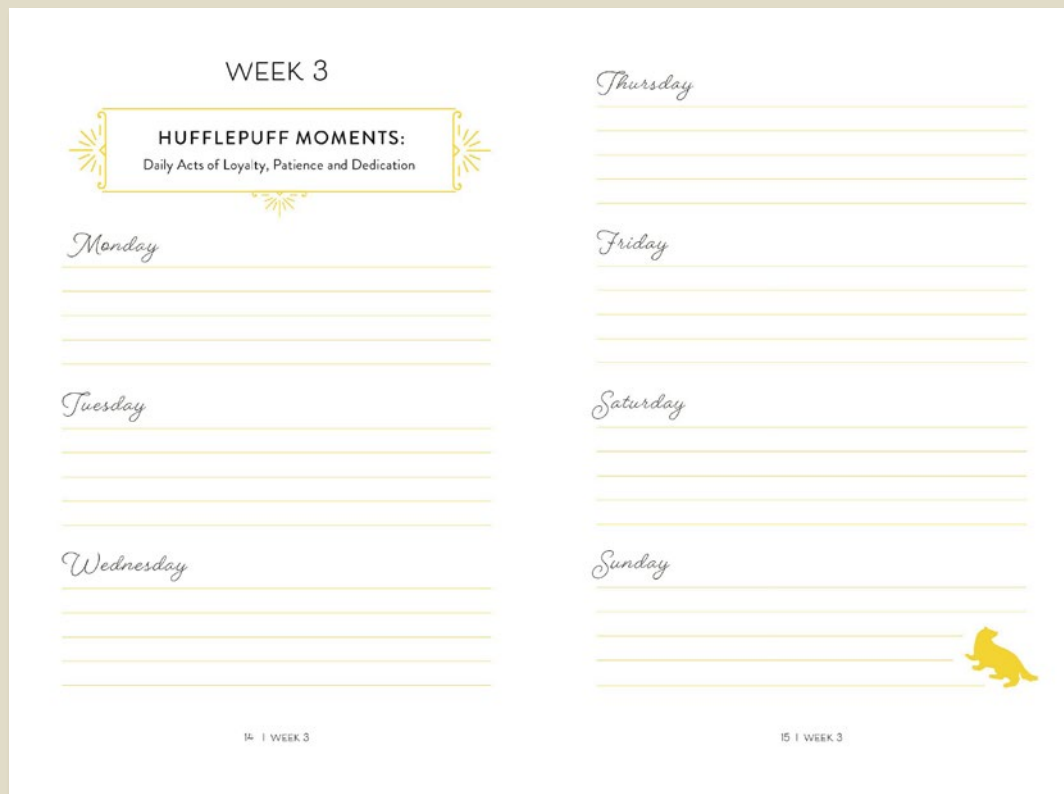 WEEK 3
HUFFLEPUFF MOMENTS:
Daily Acts of Loyalty, Patience and Dedication
Monday
Tuesday
Wednesday
14 | WEEK 3
Thursday
Friday
Saturday
Sunday
15 | WEEK 3